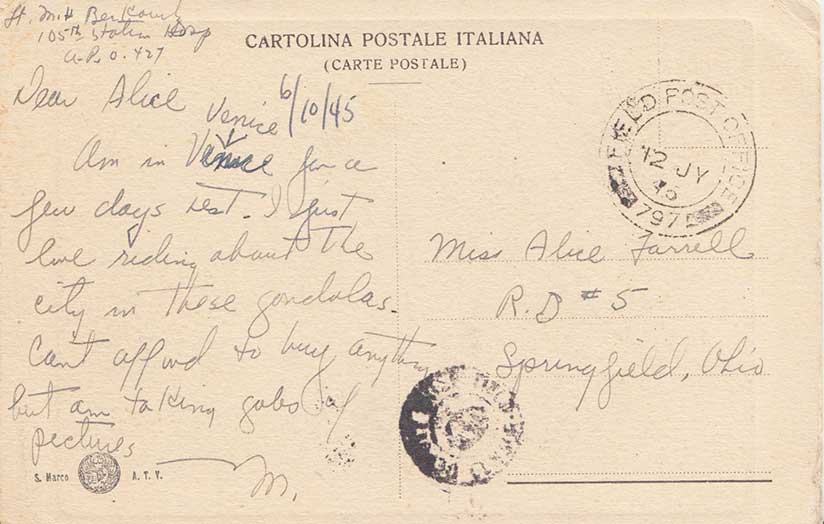 Lt. M.H Berkowitz
105th Station Hosp
A.P.O. 427
CARTOLINA POSTALE ITALIANA
(CARTE POSTALE)
Dear Alice
6/10/45
Venice
Am in Venice for a
few days rest. I just
love riding about the
city in these gondolas.
Cant afford to buy anything
but am taking gobs of
pictures
M.
S. Marco
A. T. V.
FIELD POST OFFICE
12 JY
45
797
Miss Alice Farrell
R.D #5
Springfield, Ohio